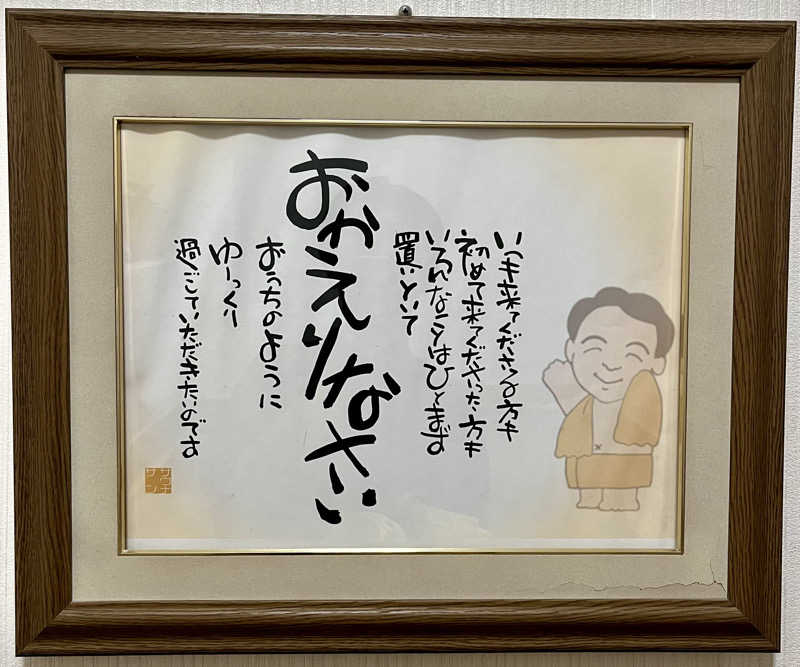 いつも来てくださる方も
初めて来てくださった方も
いろんなことはひとまず
置いといて
おかえりなさい
おうちのように
ゆーっくり
過ごしていただきたいのです